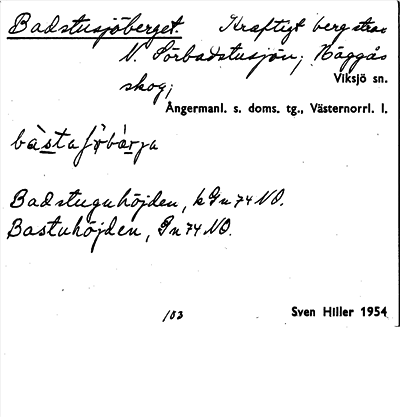 Badstusjöberget. Kraftigt berg strax
N. Sörbadstusjön; Häggås
Viksjö sn.
skog;
Ångermanl. s. doms. tg., Västernorrl. l.
Badstuguhöjden, kGn 74 NO.
Bastuhöjden, Gn 74 NO.
103
Sven Hiller 1954